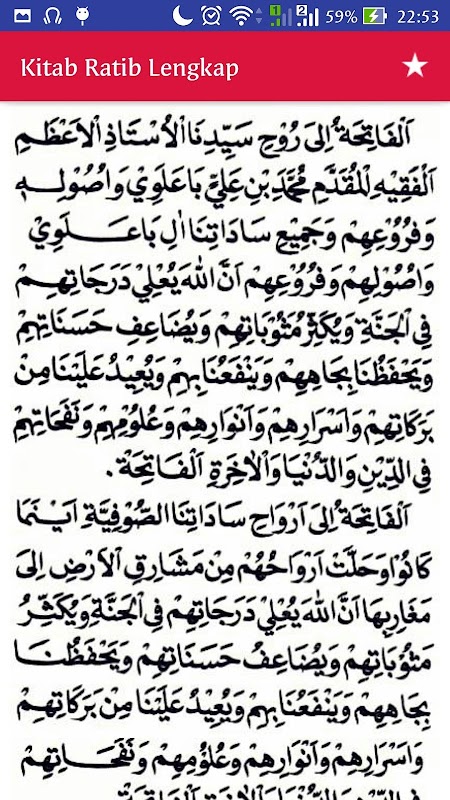 59% 22:53
Kitab Ratib Lengkap
اَلْفَاتِحَةُ اِلَى رُوْحِ سَيِّدِنَا الْاُسْتَاذِ الْاَعْظَمِ
اَلْفَقِيْهِ الْمُقَدَّمِ مُحَمَّدِ بْنِ عَلِيٍّ بَاعَلَوِيْ وَاُصُوْلِهِ
وَفُرُوْعِهِمْ وَجَمِيْعِ سَادَاتِنَا اٰلِ بَاعَلَوِيْ
وَاُصُوْلِهِمْ وَفُرُوْعِهِمْ اَنَّ اللهَ يُعْلِيْ دَرَجَاتِهِمْ
فِى الْجَنَّةِ وَيُكَثِّرُ مَثُوْبَاتِهِمْ وَيُضَاعِفُ حَسَنَاتِهِمْ
وَيَحْفَظُنَا بِجَاهِهِمْ وَيَنْفَعُنَا بِهِمْ وَيُعِيْدُ عَلَيْنَا مِنْ
بَرَكَاتِهِمْ وَاَسْرَارِهِمْ وَاَنْوَارِهِمْ وَعُلُوْمِهِمْ وَنَفَحَاتِهِمْ
فِى الدِّيْنِ وَالدُّنْيَا وَالْاٰخِرَةِ اَلْفَاتِحَةْ.
اَلْفَاتِحَةُ اِلَى اَرْوَاحِ سَادَاتِنَا الصُّوْفِيَّةِ اَيْنَمَا
كَانُوْا وَحَلَّتْ اَرْوَاحُهُمْ مِنْ مَشَارِقِ الْاَرْضِ اِلَى
مَغَارِبِهَا اَنَّ اللهَ يُعْلِيْ دَرَجَاتِهِمْ فِى الْجَنَّةِ وَيُكَثِّرُ
مَثُوْبَاتِهِمْ وَيُضَاعِفُ حَسَنَاتِهِمْ وَيَحْفَظُنَا
بِجَاهِهِمْ وَيَنْفَعُنَا بِهِمْ وَيُعِيْدُ عَلَيْنَا مِنْ بَرَكَاتِهِمْ
وَاَسْرَارِهِمْ وَاَنْوَارِهِمْ وَعُلُوْمِهِمْ وَنَفَحَاتِهِمْ